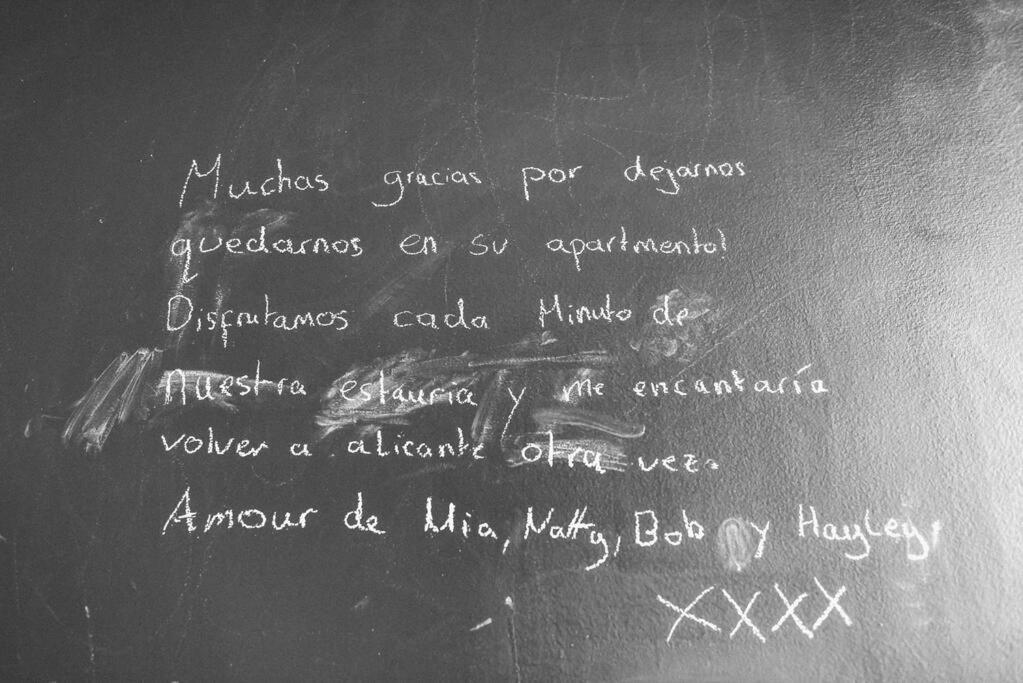 Muchas gracias por dejarnos
quedarnos en su apartmento!
Disfrutamos cada Minuto de
nuestra estauria y me encantaría
volver a alicante otra vez.
Amour de Mia, Natty, Bob y Hayley,
XXXX